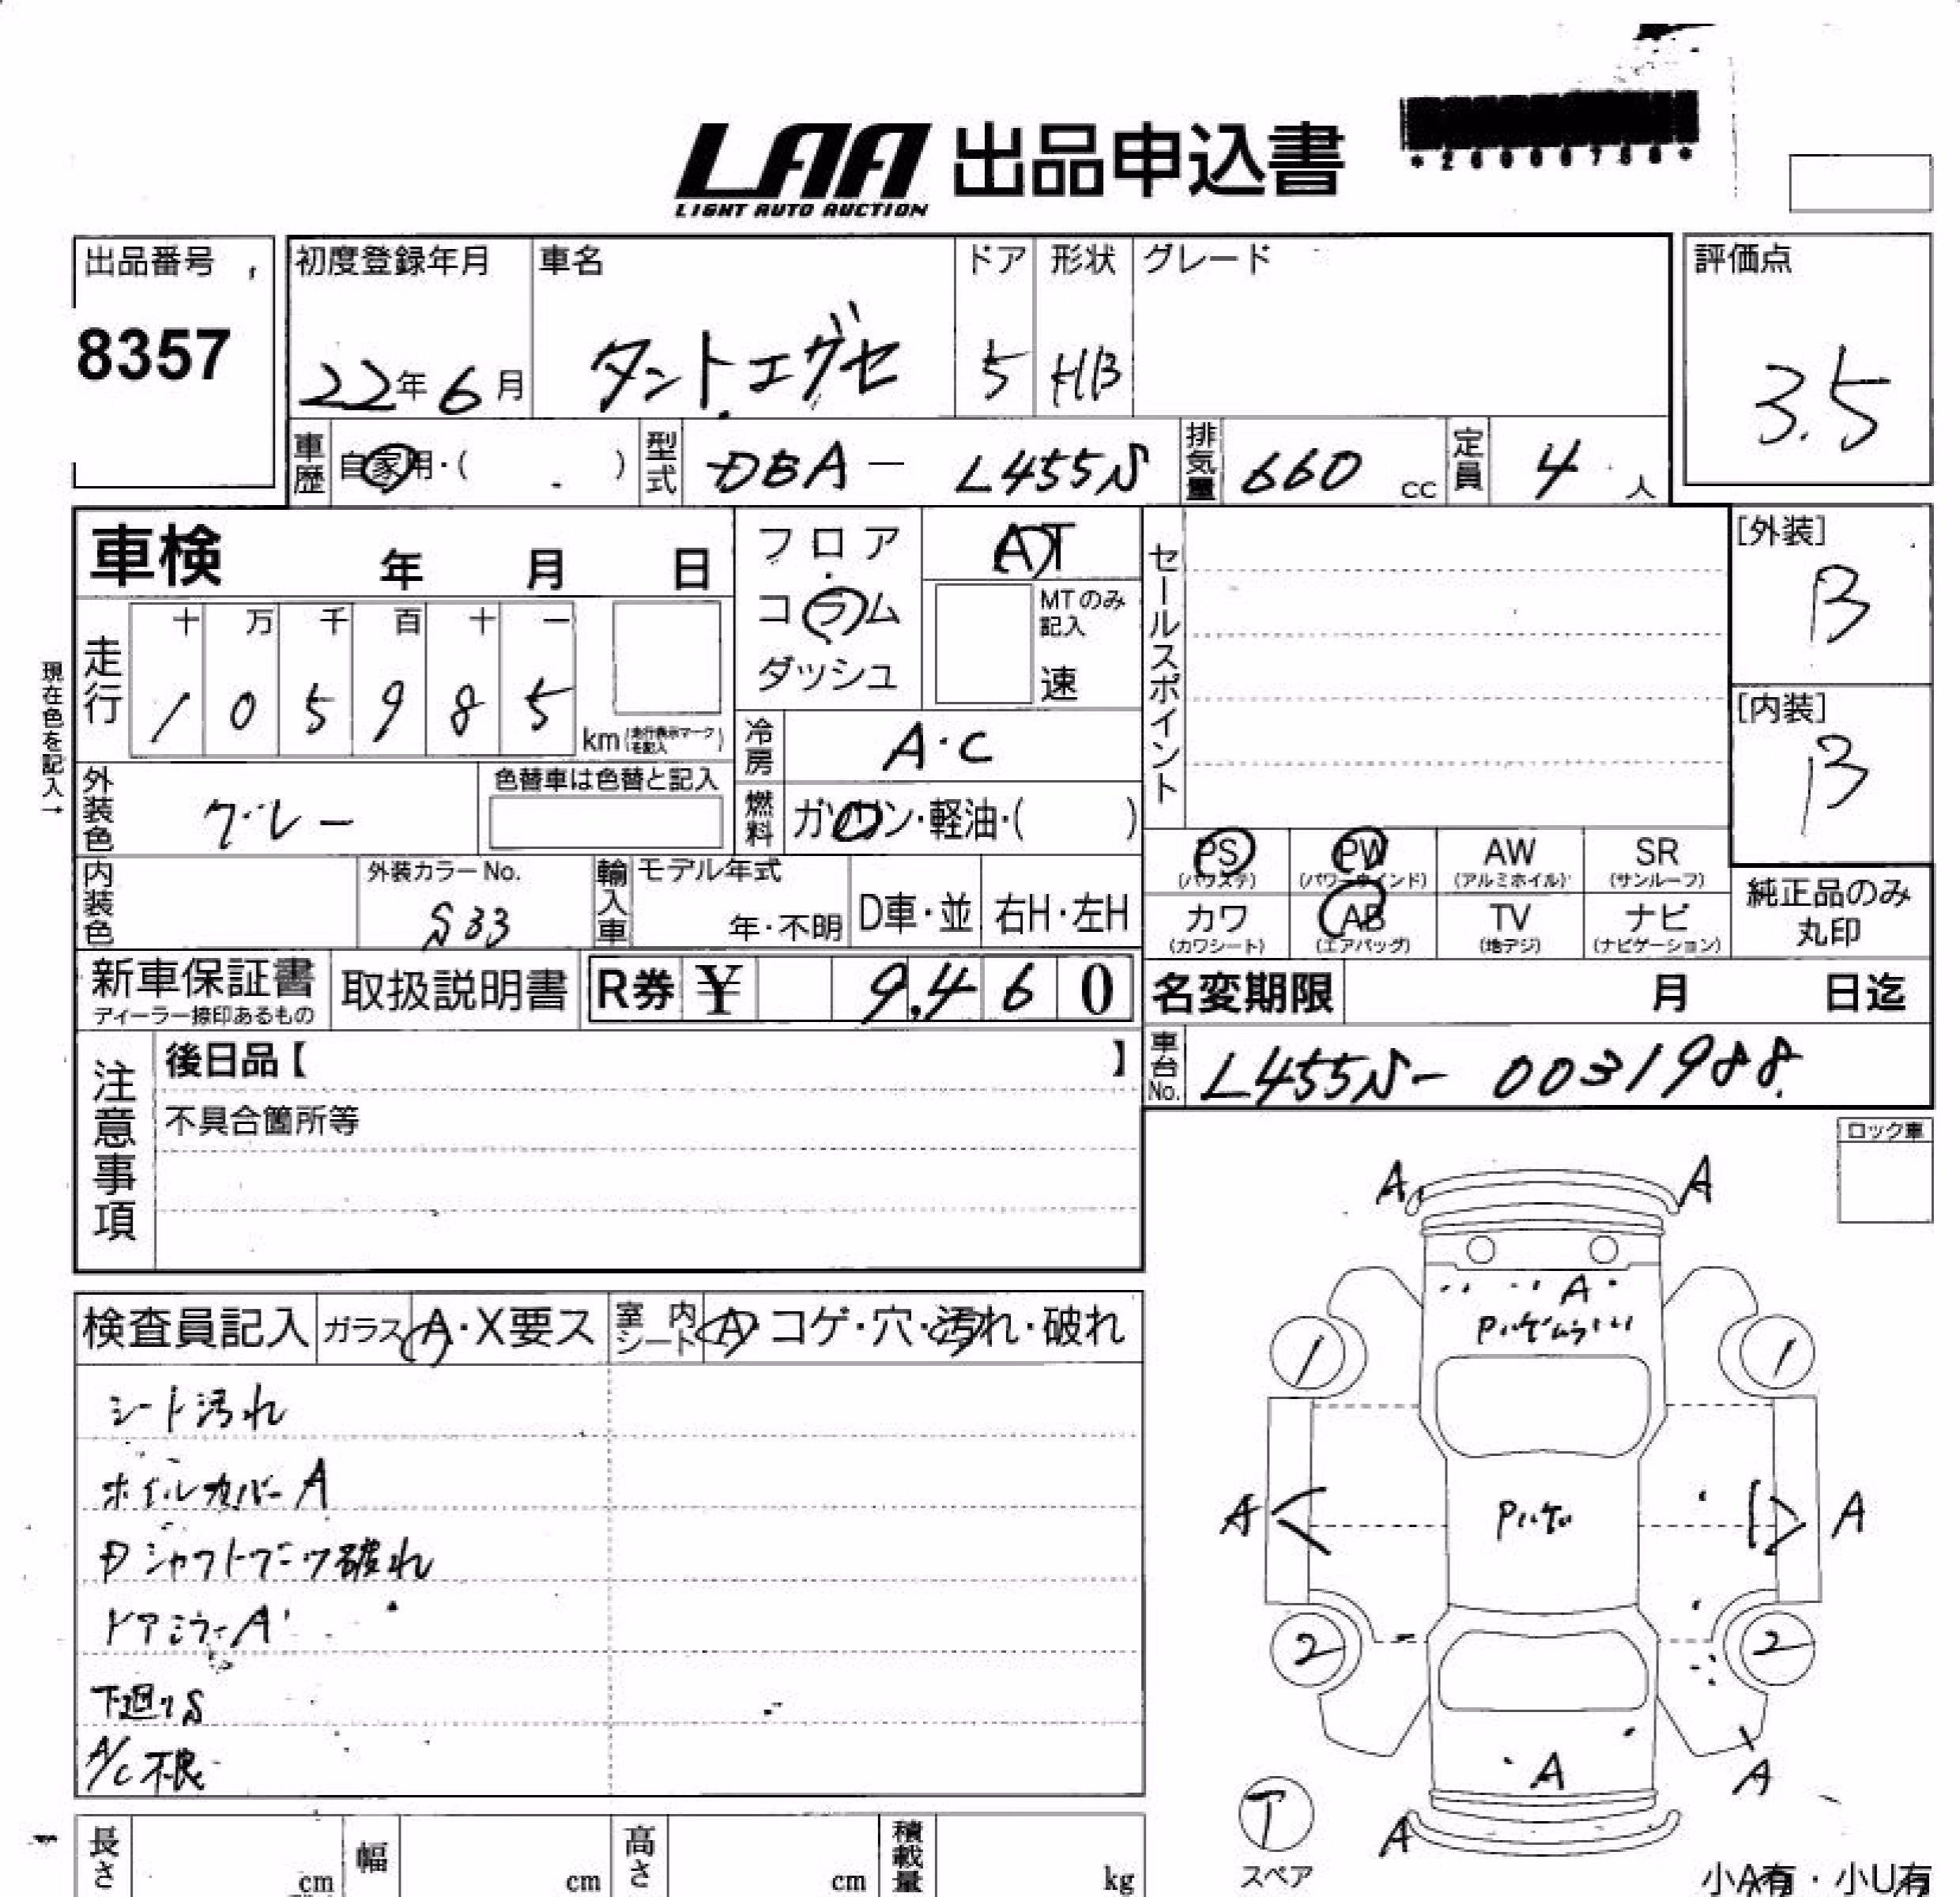 LAA 出品申込書
LIGHT AUTO AUCTION
出品番号
8357
初度登録年月
22年6月
車名
タントエグゼ
ドア
5
形状
HB
グレード
評価点
3.5
車歴 自家用・( )
型式 DBA- L455S
排気量 660 cc
定員 4 人
車検 年 月 日
フロア
コラム
ダッシュ
AT
MTのみ記入
速
セールスポイント
[外装]
B
[内装]
B
現在色を記入→
走行
十 万 千 百 十 一
1 0 5 9 8 5
km(走行表示マークを記入)
冷房 A・C
燃料 ガソリン・軽油・( )
外装色 グレー
色替車は色替と記入
PS (パワステ)
PW (パワーウインド)
AW (アルミホイル)
SR (サンルーフ)
カワ (カワシート)
AB (エアバッグ)
TV (地デジ)
ナビ (ナビゲーション)
純正品のみ
丸印
内装色
外装カラーNo.
S33
輸入車
モデル年式
年・不明
D車・並
右H・左H
新車保証書
ディーラー捺印あるもの
取扱説明書
R券 ¥ 9,460
名変期限 月 日迄
車台No. L455S- 0031988
注意事項
後日品【 】
不具合箇所等
ロック車
検査員記入
ガラス A・X要ス
室内シート A・コゲ・穴・汚れ・破れ
シート汚れ
ホイルカバーA
Dシャフトブーツ破れ
ドアミラーA
下廻りS
A/C不良
A A
A
1 1
A A
2 2
A
A
A
ア
スペア
長さ cm
幅 cm
高さ cm
積載量 kg
小A有・小U有